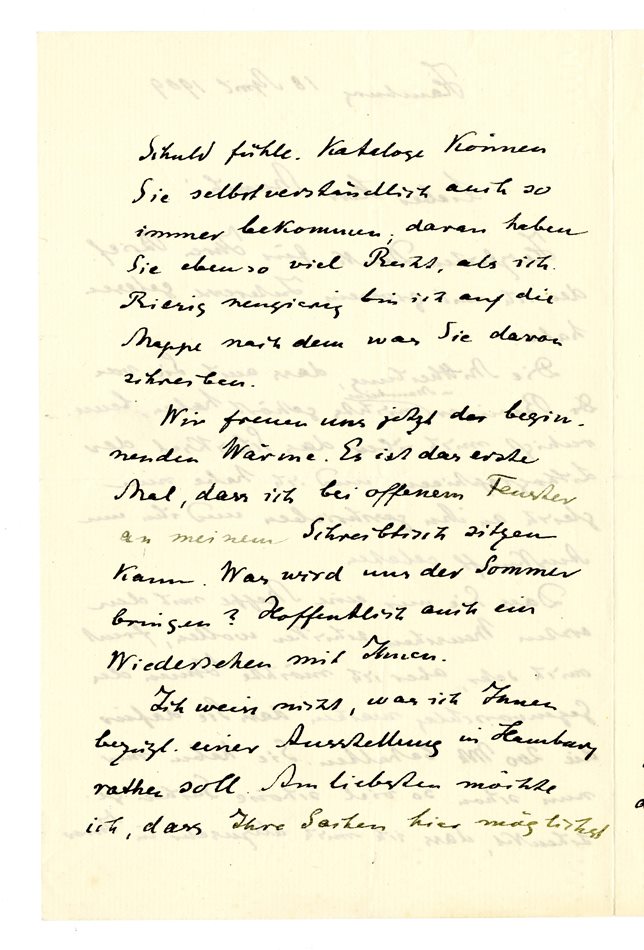 Schuld fühle. Kataloge können
Sie selbstverständlich auch so
immer bekommen, daran haben
Sie ebenso viel Recht, als ich.
Riesig neugierig bin ich auf die
Mappe nach dem was Sie davon
schreiben.
Wir freuen uns jetzt der begin-
nenden Wärme. Es ist das erste
Mal, dass ich bei offenem Fenster
an meinem Schreibtisch sitzen
kann. Was wird uns der Sommer
bringen? Hoffentlich auch ein
Wiedersehen mit Ihnen.
Ich weiss nicht, was ich Ihnen
bezügl. einer Ausstellung in Hamburg
rathen soll. Am liebsten möchte
ich, dass Ihre Sachen hier möglichst